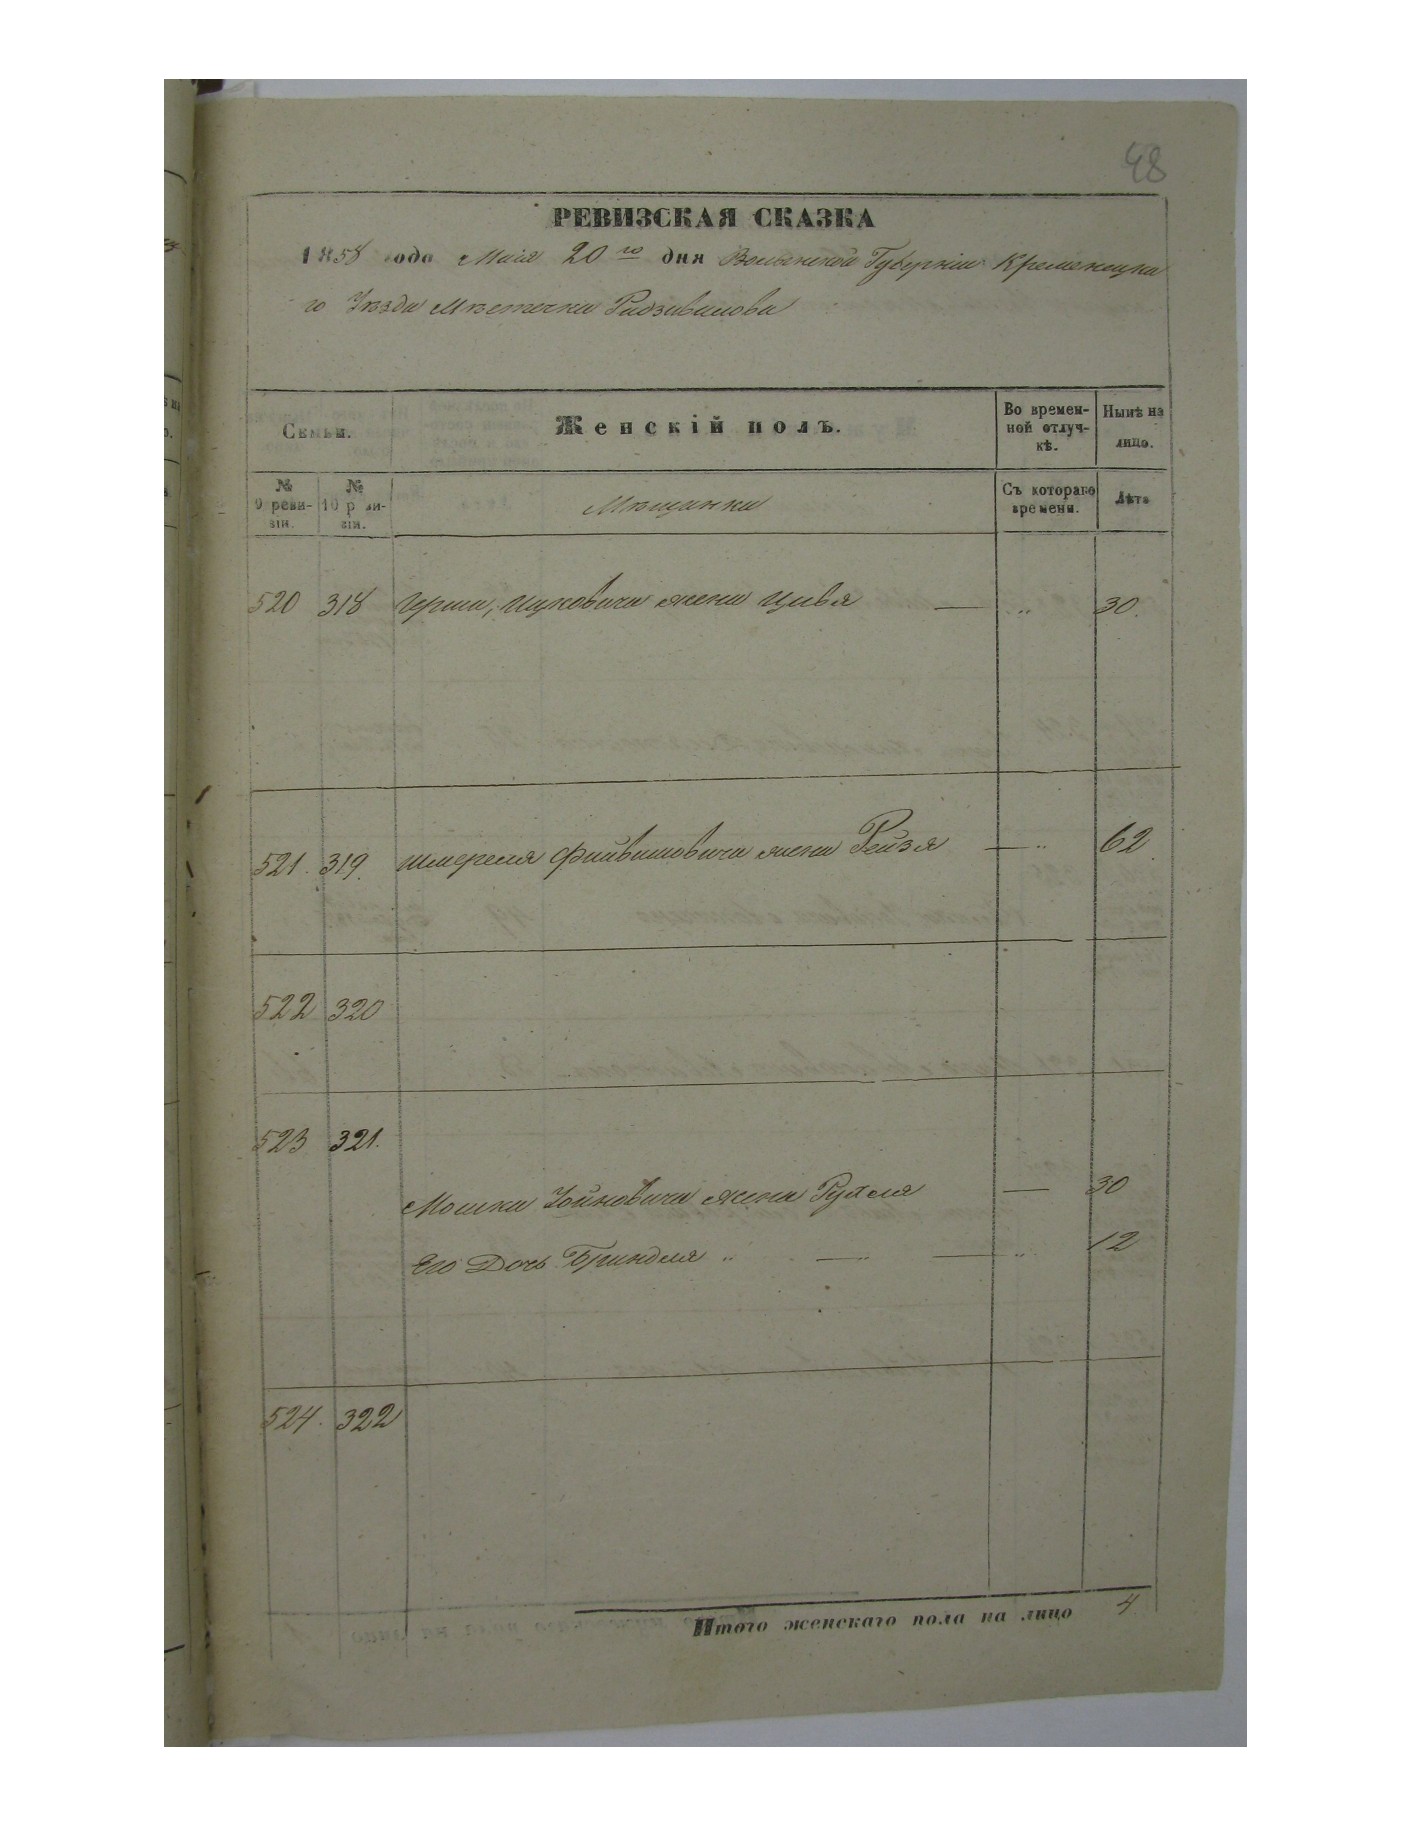 48
РЕВИЗСКАЯ СКАЗКА
1858 года Маія 20го дня Волынской Губерніи Кременецка
го Уѣзда Мѣстечка Радзивилова
Семьи.
Женскій полъ.
Во времен-
ной отлуч-
кѣ.
Нынѣ на
лицо.
№
9 реви-
зіи.
№
10 реви-
зіи.
Мѣщанки
Съ котораго
времени.
Лѣта
520 318 Герша, Ицковича жена Цивя — „ 30.
521. 319. Шмереля Файвишовича жена Рейзя — „ 62
522 320
523 321.
Мошка Іойновича жена Рухля — 30
Его Дочь Бриндля „ — „ — „ 12
524. 322
Итого женскаго пола на лицо 4